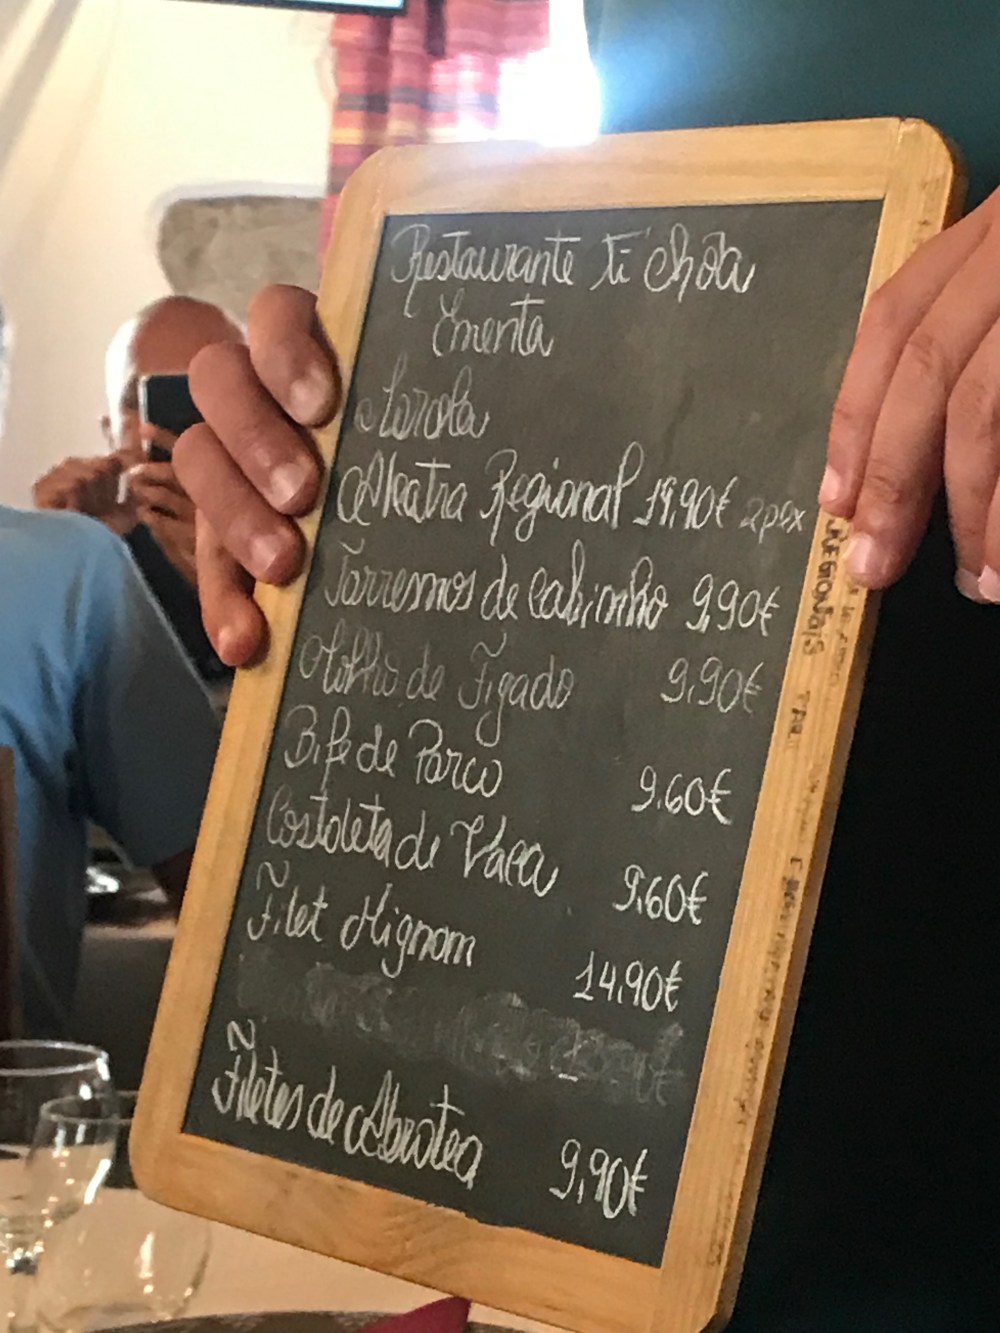 Restaurante Ti' Chóta
Ementa
Açorda
Alcatra Regional 19,90€ 2 pax
Torresmos de Cabinho 9,90€
Molho de Fígado 9,90€
Bife de Porco 9,60€
Costoleta de Vaca 9,60€
Filet Mignom 14,90€
Filetes de Abrotea 9,90€
REGIONAIS